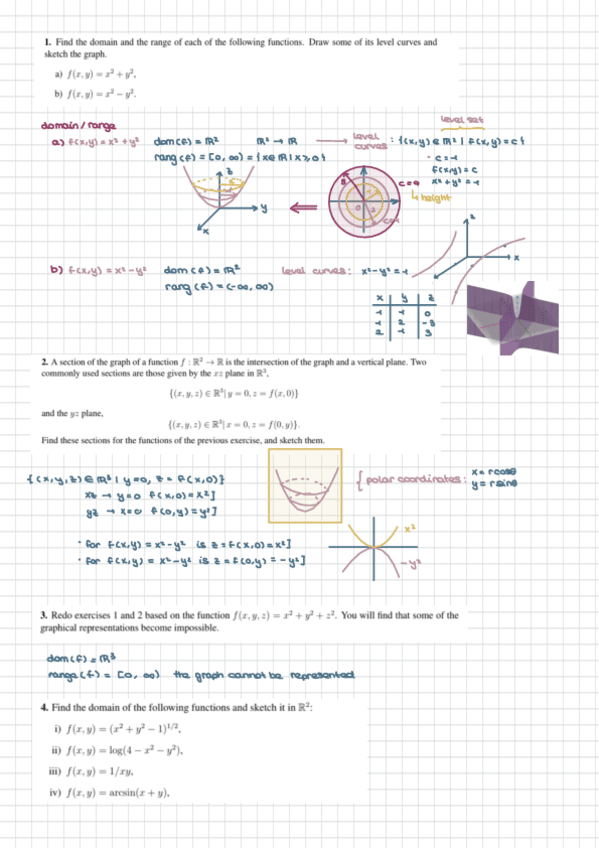 1. Find the domain and the range of each of the following functions. Draw some of its level curves and
sketch the graph.
a) f(x, y) = x² + y²,
b) f(x, y) = x² − y².
level set
domain / range
a) f(x,y) = x² + y² dom(f) = ℝ² ℝ² → ℝ → level curves : {(x,y) ∈ ℝ² | f(x,y) = c}
rang(f) = [0, ∞) = {x ∈ ℝ | x ≥ 0}
· c = -1
f(x,y) = c
x² + y² = -1
c=9
↳ height
z
y
x
b) f(x,y) = x² - y² dom(f) = ℝ² level curves: x² - y² = -1
rang(f) = (-∞, ∞)
z
x
x y z
2. A section of the graph of a function f : ℝ² → ℝ is the intersection of the graph and a vertical plane. Two
commonly used sections are those given by the xz plane in ℝ³,
{(x, y, z) ∈ ℝ³| y = 0, z = f(x, 0)}
and the yz plane,
{(x, y, z) ∈ ℝ³| x = 0, z = f(0, y)}.
Find these sections for the functions of the previous exercise, and sketch them.
{(x,y,z) ∈ ℝ³ | y=0, z = f(x,0)}
xz → y=0 f(x,0) = x²]
yz → x=0 f(0,y) = y²]
{ polar coordinates: x = rcosθ
y = rsinθ
· for f(x,y) = x² - y² is z = f(x,0) = x²]
· for f(x,y) = x² - y² is z = f(0,y) = -y²]
x²
-y²
3. Redo exercises 1 and 2 based on the function f(x, y, z) = x² + y² + z². You will find that some of the
graphical representations become impossible.
dom(f) = ℝ³
range(f) = [0, ∞) the graph cannot be represented
4. Find the domain of the following functions and sketch it in ℝ²:
i) f(x, y) = (x² + y² − 1)^{1/2},
ii) f(x, y) = log(4 − x² − y²),
iii) f(x, y) = 1/xy,
iv) f(x, y) = arcsin(x + y),